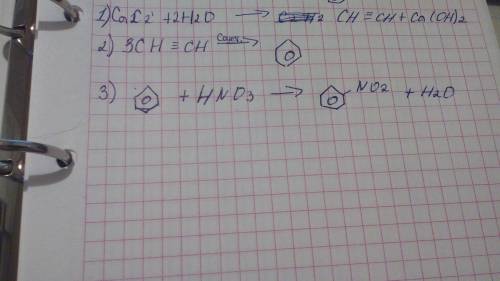 1) CaC2 + 2H2O → CH ≡ CH + Ca(OH)2
2) 3CH ≡ CH →
3) + HNO3 → NO2 + H2O